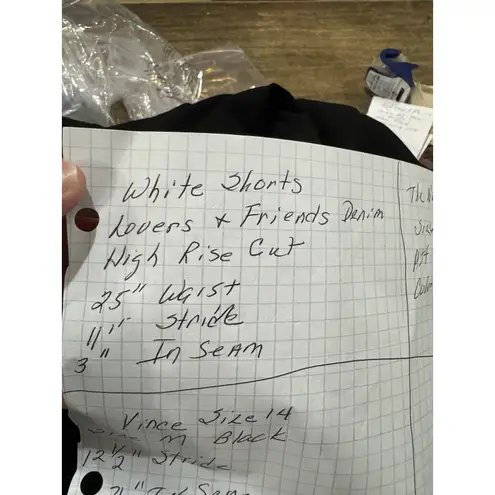 White Shorts
Lovers + Friends Denim
High Rise Cut
25" Waist
11" Stride
3" In Seam
Vince Size 14
M Black
12 1/2" Stride
The